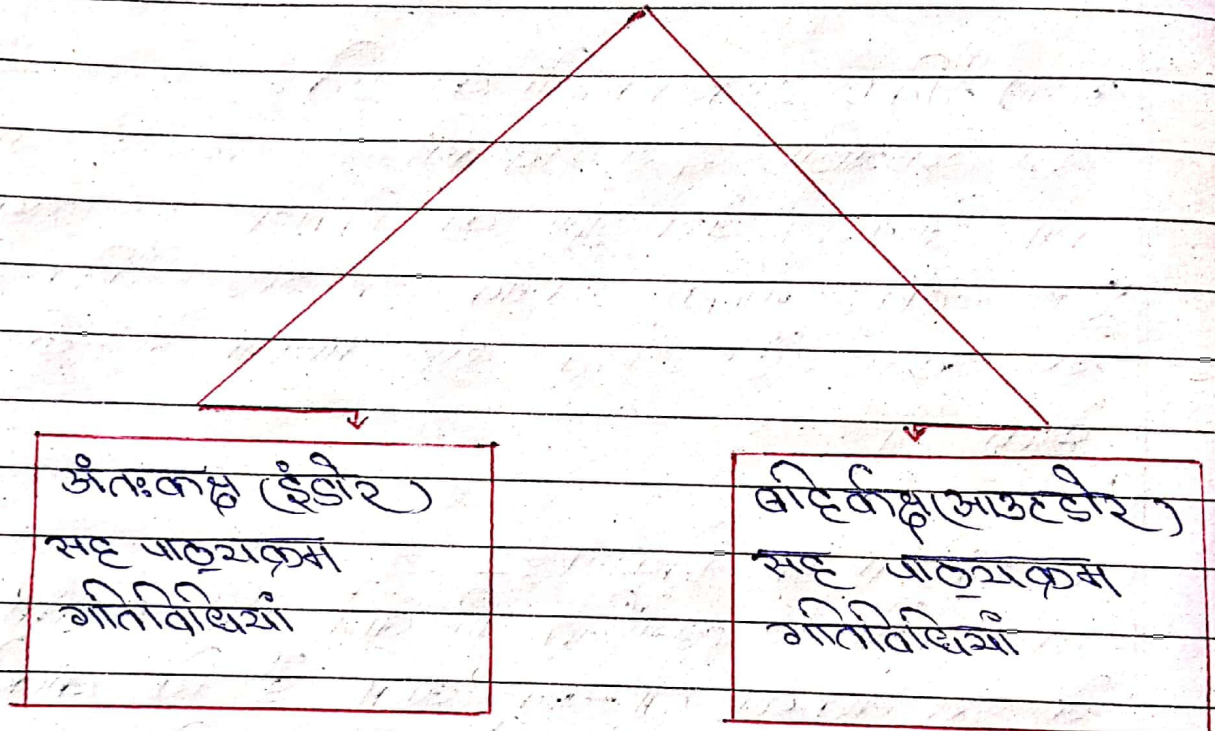 अंतःकक्ष (इंडोर)
सह पाठ्यक्रम
गतिविधियाँ
बर्हिकक्ष (आउटडोर)
सह पाठ्यक्रम
गतिविधियाँ